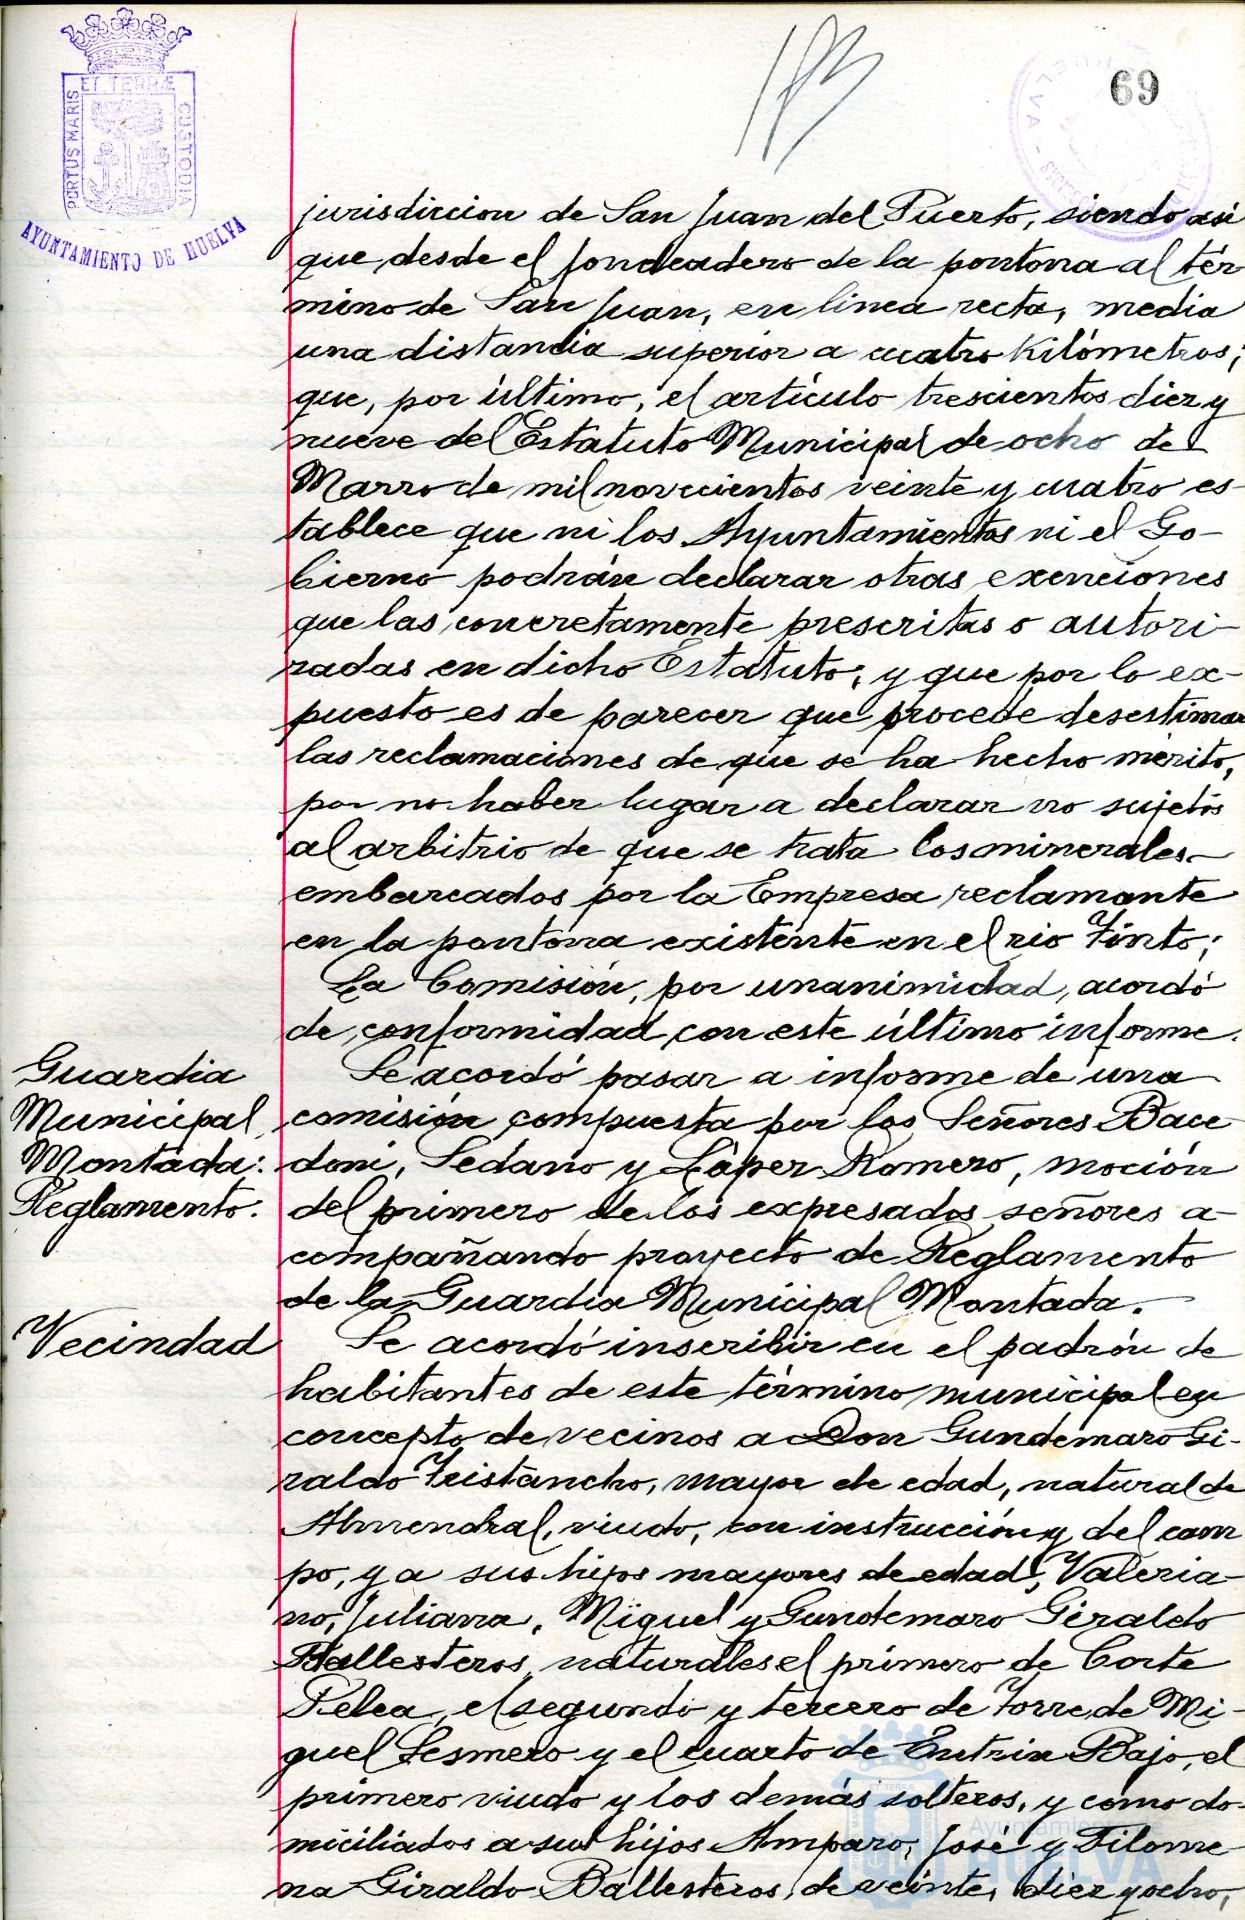 ET TERRÆ
PORTUS MARIS
CUSTODIA
AYUNTAMIENTO DE HUELVA
69
jurisdiccion de San Juan del Puerto, siendo asi
que desde el fondeadero de la pontona al tér-
mino de San Juan, en linea recta, media
una distancia superior a cuatro Kilómetros;
que, por último, el artículo trescientos diez y
nueve del Estatuto Municipal de ocho de
Marzo de mil novecientos veinte y cuatro es-
tablece que ni los Ayuntamientos ni el Go-
bierno podrán declarar otras exenciones
que las concretamente prescritas o autori-
zadas en dicho Estatuto; y que por lo ex-
puesto es de parecer que procede desestimar
las reclamaciones de que se ha hecho mérito,
por no haber lugar a declarar no sujetos
al arbitrio de que se trata los minerales
embarcados por la Empresa reclamante
en la pontona existente en el rio Tinto;
La Comisión, por unanimidad, acordó
de conformidad con este último informe.
Guardia
Municipal
Montada:
Reglamento.
Se acordó pasar a informe de una
comisión compuesta por los Señores Bace-
doni, Sedano y López Romero, moción
del primero de los expresados señores a-
compañando proyecto de Reglamento
de la Guardia Municipal Montada.
Vecindad
Se acordó inscribir en el padrón de
habitantes de este término municipal en
concepto de vecinos a Don Gundemaro Gi-
raldo Tristancho, mayor de edad, natural de
Almendral, viudo, con instrucción y del cam
po, y a sus hijos mayores de edad, Valeria-
no, Juliana, Miguel y Gundemaro Giraldo
Ballesteros, naturales el primero de Corte
Pelea, el segundo y tercero de Torre de Mi-
guel Sesmero y el cuarto de Entrin Bajo, el
primero viudo y los demás solteros, y como do-
miciliados a sus hijos Amparo, José y Filome
na Giraldo Ballesteros, de veinte, diez y ocho,
Ayuntamiento de
HUELVA